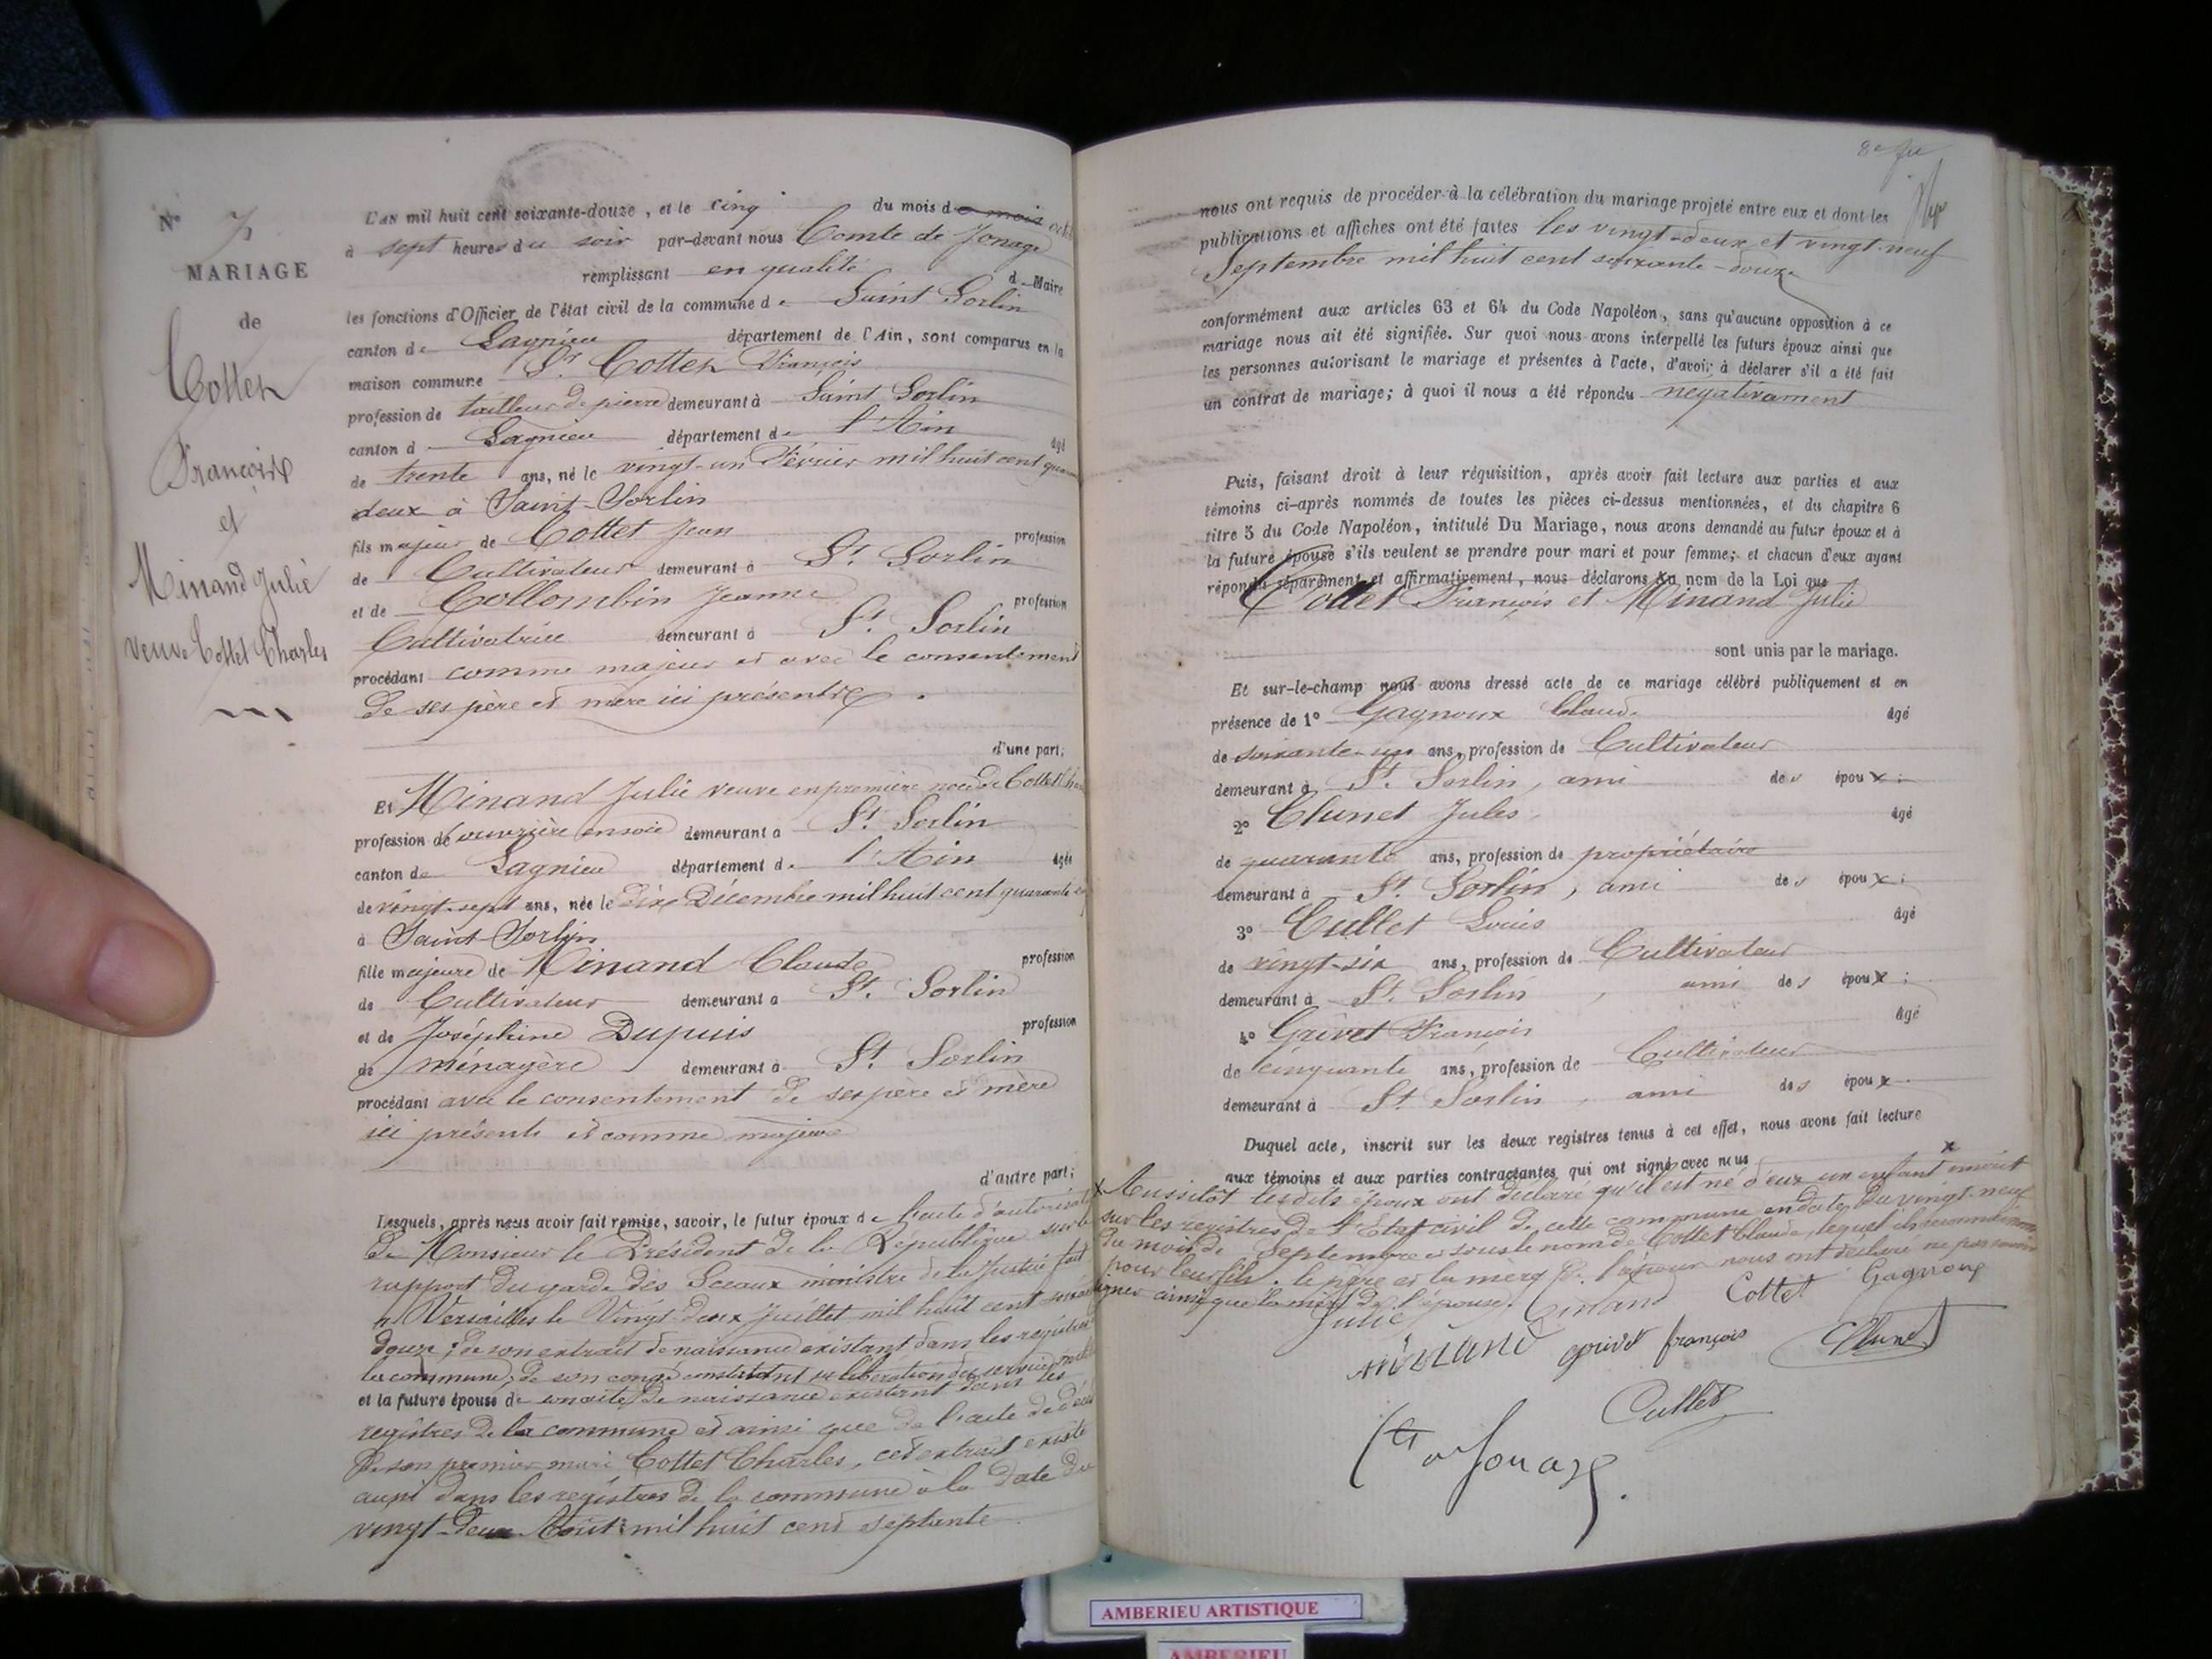 N° 7
MARIAGE
de
Cottet
François
et
Minand Julie
veuve Cottet Charles
L'AN mil huit cent soixante-douze, et le cinq du mois de mois
à sept heures du soir par-devant nous Comte de Jonage
remplissant en qualité d Maire
les fonctions d'Officier de l'état civil de la commune de Saint Sorlin
canton de Lagnieu département de l'Ain, sont comparus en la
maison commune Sr Cottet François
profession de tailleur de pierre demeurant à Saint Sorlin
canton d Lagnieu département de l'Ain âgé
de trente ans, né le vingt-un Février mil huit cent
deux à Saint-Sorlin
fils majeur de Cottet Jean profession
de Cultivateur demeurant à St. Sorlin
et de Collombin Jeanne profession
Cultivatrice demeurant à St. Sorlin
procédant comme majeur et avec le consentement
de ses père et mère ici présents
d'une part;
Et Minand Julie veuve en première noce de Cottet
profession de ouvrière en soie demeurant à St. Sorlin
canton de Lagnieu département de l'Ain âgée
de vingt-sept ans, née le dix Décembre mil huit cent quarante
à Saint-Sorlin
fille majeure de Minand Claude profession
de Cultivateur demeurant à St. Sorlin
et de Joséphine Dupuis profession
de ménagère demeurant à St. Sorlin
procédant avec le consentement de ses père et mère
ici présents et comme majeure
d'autre part;
Lesquels, après nous avoir fait remise, savoir, le futur époux de l'acte d'autorisation
de Monsieur le Président de la République sur le
rapport du garde des Sceaux ministre de la Justice fait
à Versailles le Vingt-deux Juillet mil huit cent
douze; de son extrait de naissance existant dans les registres
la commune, de son congé constatant sa libération du service
et la future épouse de son acte de naissance existant dans les
registres de la commune et ainsi que de l'acte de décès
de son premier mari Cottet Charles, cet extrait existe
aussi dans les registres de la commune à la date du
vingt-deux Août mil huit cent septante
nous ont requis de procéder à la célébration du mariage projeté entre eux et dont les
publications et affiches ont été faites les vingt-deux et vingt-neuf
Septembre mil huit cent soixante-douze
conformément aux articles 63 et 64 du Code Napoléon, sans qu'aucune opposition à ce
mariage nous ait été signifiée. Sur quoi nous avons interpellé les futurs époux ainsi que
les personnes autorisant le mariage et présentes à l'acte, d'avoir à déclarer s'il a été fait
un contrat de mariage; à quoi il nous a été répondu negativement
Puis, faisant droit à leur réquisition, après avoir fait lecture aux parties et aux
témoins ci-après nommés de toutes les pièces ci-dessus mentionnées, et du chapitre 6
titre 5 du Code Napoléon, intitulé Du Mariage, nous avons demandé au futur époux et à
la future épouse s'ils veulent se prendre pour mari et pour femme; et chacun d'eux ayant
répondu séparément et affirmativement, nous déclarons au nom de la Loi que
Cottet François et Minand Julie
sont unis par le mariage.
Et sur-le-champ nous avons dressé acte de ce mariage célébré publiquement et en
présence de 1° Gagnoux Claude âgé
de soixante-un ans, profession de Cultivateur
demeurant à St. Sorlin, ami des époux;
2° Clunet Jules, âgé
de quarante ans, profession de propriétaire
demeurant à St. Sorlin, ami des époux;
3° Cullet Louis âgé
de vingt-six ans, profession de Cultivateur
demeurant à St. Sorlin, ami des époux;
4° Grivet François âgé
de cinquante ans, profession de Cultivateur
demeurant à St. Sorlin, ami des époux.
Duquel acte, inscrit sur les deux registres tenus à cet effet, nous avons fait lecture
aux témoins et aux parties contractantes qui ont signé avec nous x
x Aussitôt lesdits époux ont déclaré qu'il est né d'eux un enfant inscrit
sur les registres de l'Etat civil de cette commune en date du vingt-neuf
du mois de Septembre et sous le nom de Cottet Claude, lequel ils reconnaissent
pour leur fils. le père et la mère de l'époux nous ont déclaré ne pas savoir
signer ainsi que la mère de l'épouse.
Julie Minand Cottet Gagnoux
minand grivet françois Clunet
Cullet
Cte de Jonage.
AMBERIEU ARTISTIQUE
AMBERIEU